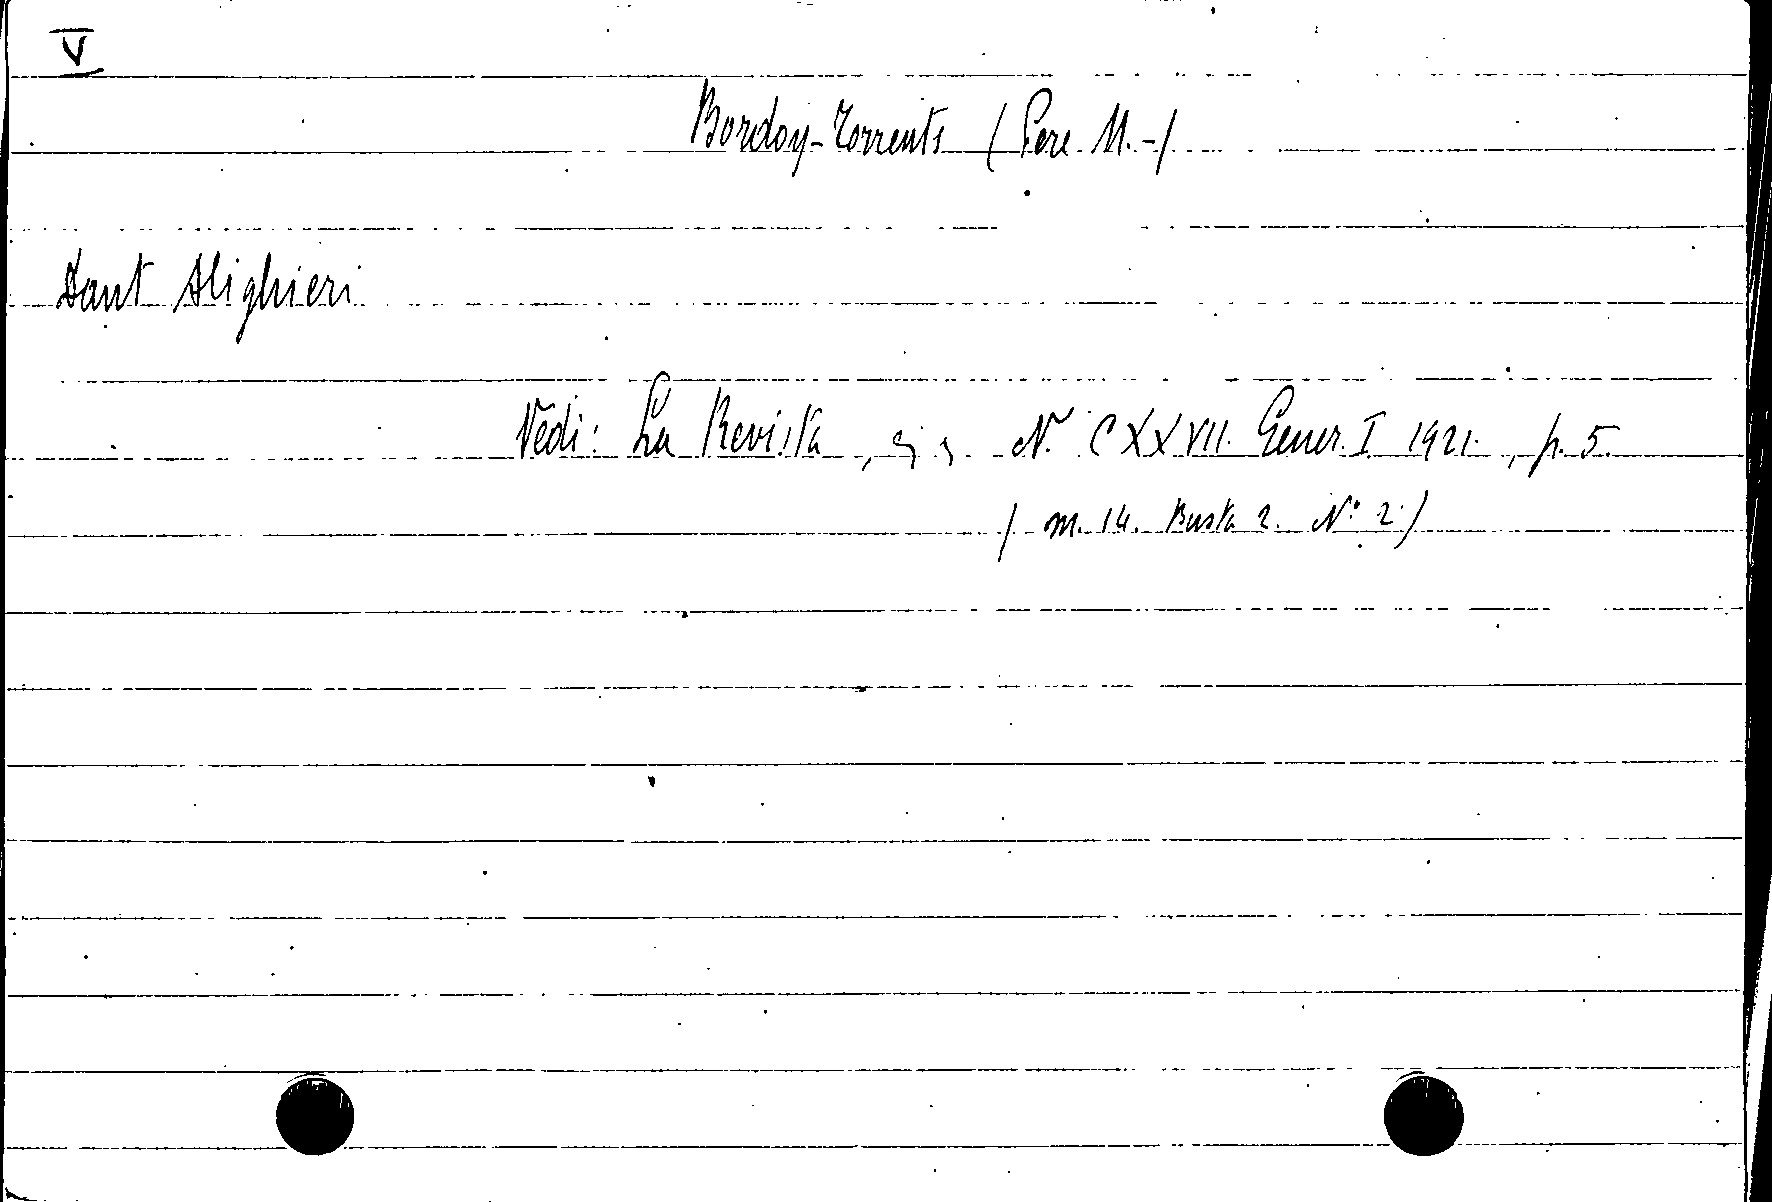 V
Bordoy-Torrents (Pere M.-)
Dant Alighieri
Vedi: La Revista, N. CXXVII. Gener. I 1921., p. 5.
(m. 14. Busta 2. N° 2.)